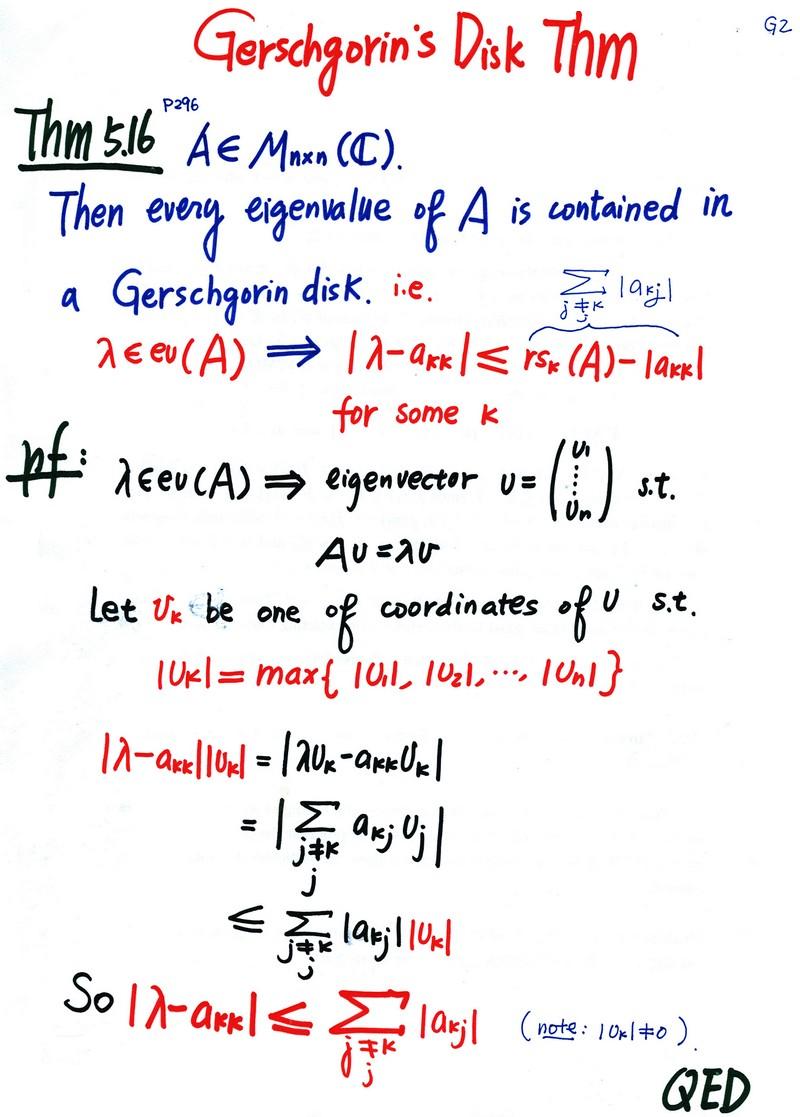 Gerschgorin's Disk Thm
G2
Thm 5.16 P296 A ∈ Mn×n (ℂ).
Then every eigenvalue of A is contained in
a Gerschgorin disk. i.e. ∑ |akj|
j≠k
j
λ ∈ ev(A) ⇒ |λ-akk| ≤ rsk(A)-|akk|
for some k
pf: λ ∈ ev(A) ⇒ eigenvector v = (v1 ⋮ vn) s.t.
Av = λv
Let vk be one of coordinates of v s.t.
|vk| = max{ |v1|, |v2|, ..., |vn| }
|λ-akk||vk| = |λvk-akkvk|
= | ∑ akj vj |
j≠k
j
≤ ∑ |akj||vk|
j≠k
j
So |λ-akk| ≤ ∑ |akj| (note: |vk|≠0).
j≠k
j
QED